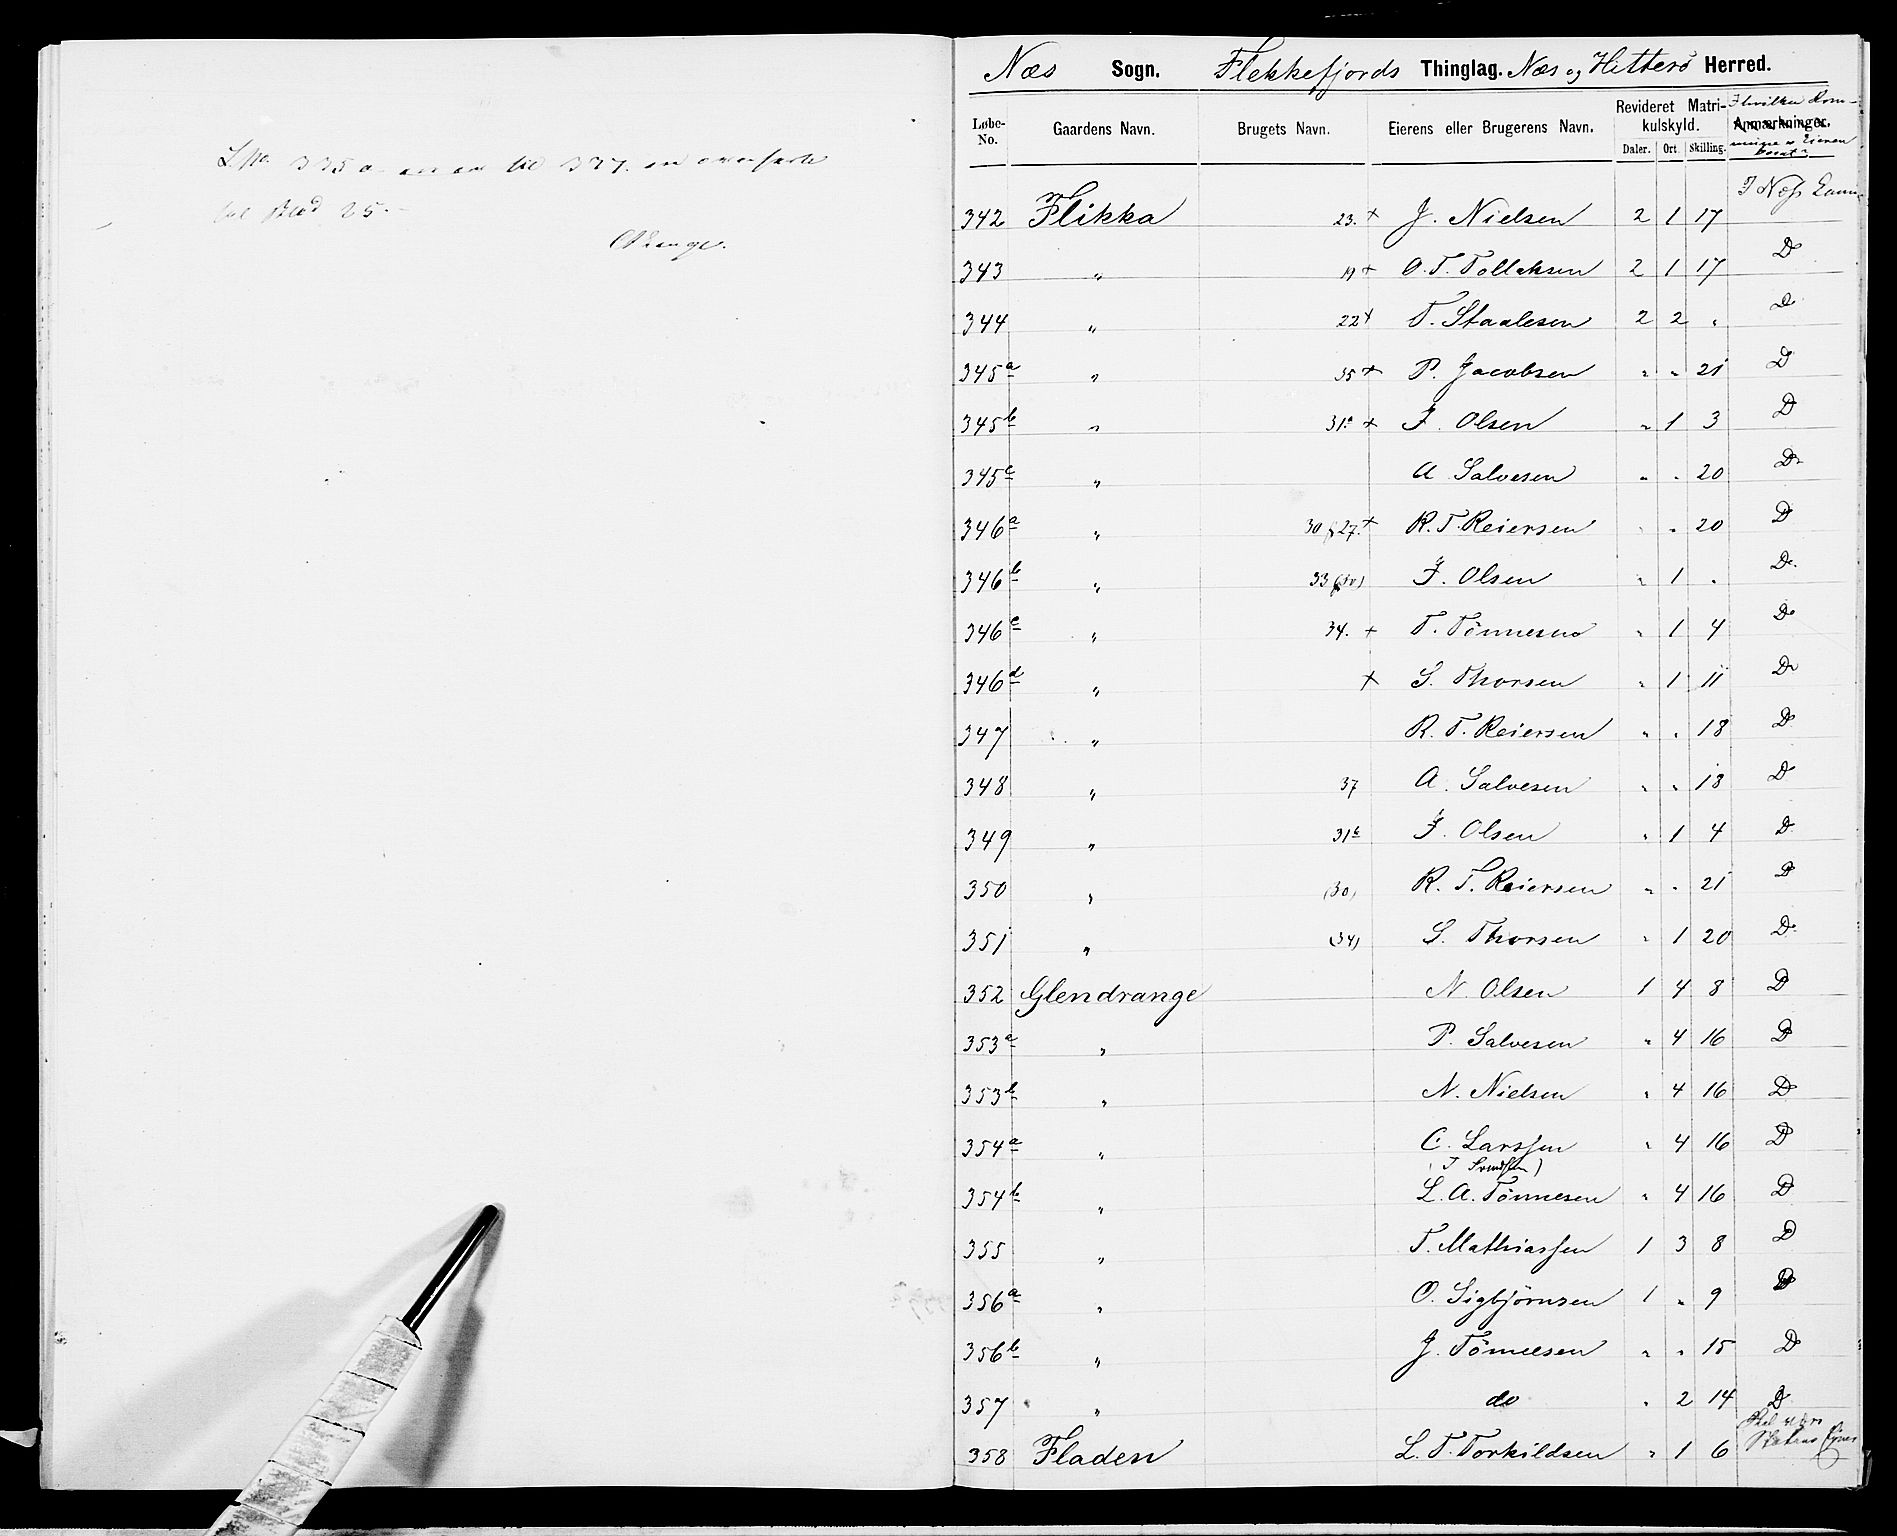 til Blad 25.
Næs Sogn. Flekkefjords Thinglag. Næs og Hitterö Herred.
Løbe-No. Gaardens Navn. Brugets Navn. Eierens eller Brugerens Navn. Revideret Matrikulskyld. Daler. Ort. Skilling. Anmærkninger. I hvilken Kommune er Eieren bosat?
342 Flikka 23. + J. Nielsen 2 1 17 I Næs
343 " 19 + O. T. Tollaksen 2 1 17 Do
344 " 22 + T. Staalesen 2 2 " Do
345a " 35 + P. Jacobsen " " 21 Do
345b " 31a + J. Olsen " 1 3 Do
345c " A Salvesen " " 20 Do
346a " 30 27. + R. T. Reiersen " " 20 Do
346b " 33 J. Olsen " 1 " Do
346c " 34. + T. Tönnesen " 1 4 Do
346d " + S. Thorsen " 1 11 Do
347 " R. T. Reiersen " " 18 Do
348 " 37 A. Salvesen " " 13 Do
349 " 31b J. Olsen " 1 4 Do
350 " (30) R. T. Reiersen " " 21 Do
351 " (34) S. Thorsen " 1 20 Do
352 Glendrange N. Olsen 1 4 8 Do
353a " P. Salvesen " 4 16 Do
353b " N. Nielsen " 4 16 Do
354a " C. Larssen " 4 16 Do
354b " L. A. Tönnesen " 4 16 Do
355 " T. Mathiassen 1 3 8 Do
356a " O. Sigbjörnsen 1 " 9 Do
356b " J. Tönnesen " " 15 Do
357 " do " 2 14 Do
358 Fladen L. T. Torkildsen " 1 6